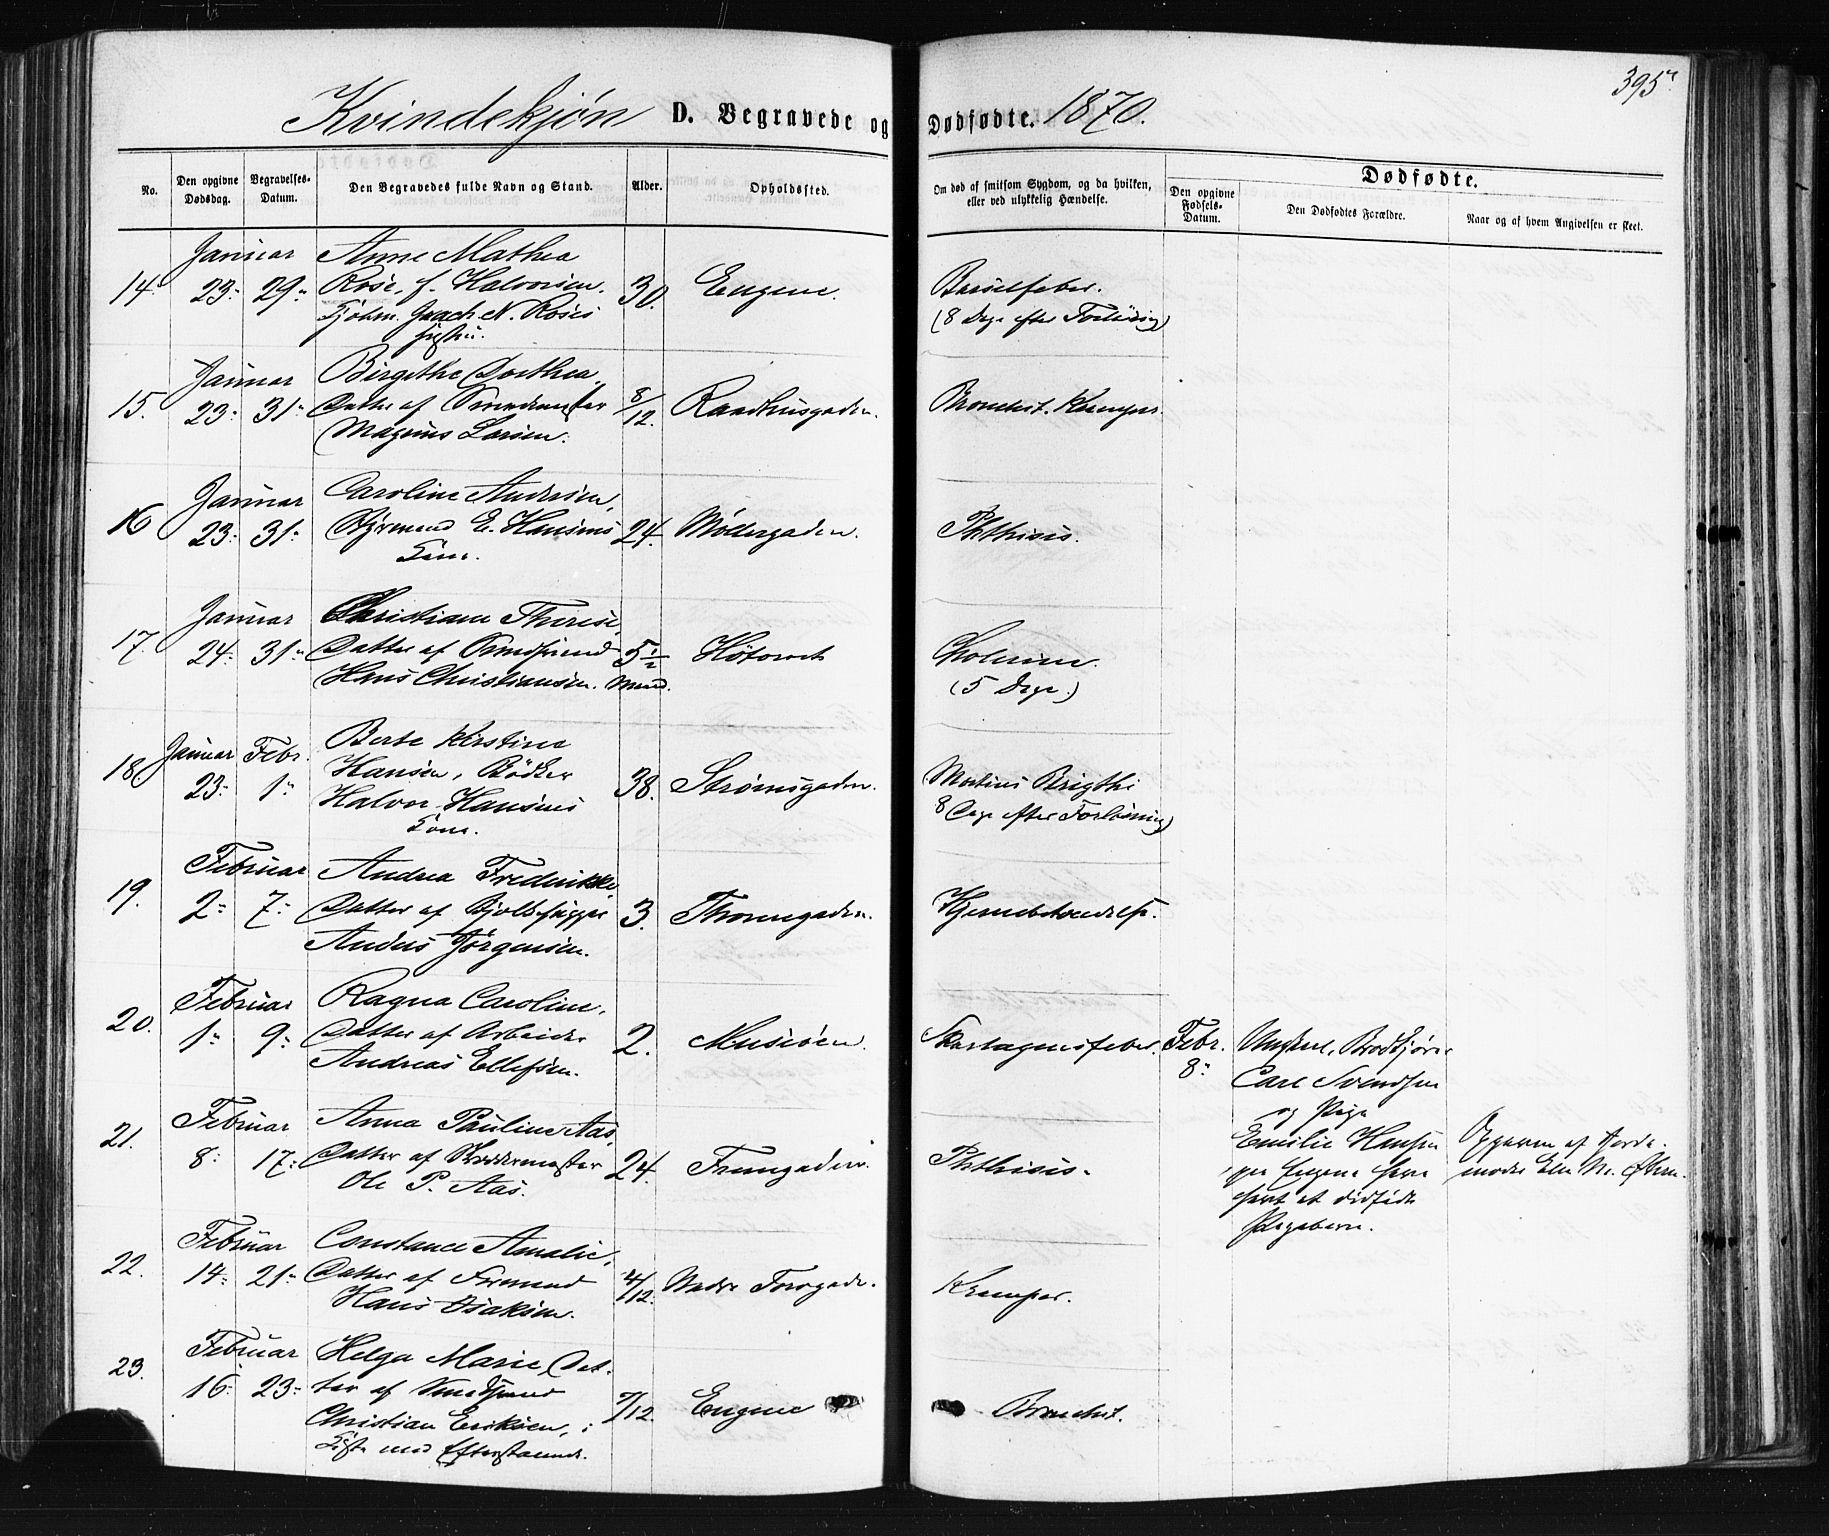 395
Kvindekjøn D. Begravede og Dødfødte. 1870.
No.
Den opgivne Dødsdag.
Begravelses-Datum.
Den Begravedes fulde Navn og Stand.
Alder.
Opholdssted.
Om død af smitsom Sygdom, og da hvilken, eller ved ulykkelig Hændelse.
Dødfødte.
Den opgivne Fødsels-Datum.
Den Dødfødtes Forældre.
Naar og af hvem Angivelsen er skeet.
Januar Anne Mathea
14. 23. 29. Rose, f. Halvorsen. 30. Engene. Barselfeber.
N. Roses (8 Dage efter Forløsning)
Januar Birgithe Dorthea,
15. 23. 31. Datter af 8/12. Raadhusgaden. Bronchit. Kramper.
Magnus Larsen.
Januar Caroline Andersen,
16 23. 31. E. Hansens 24. Møllergaden. Phthisis.
Kone.
Januar Christiane Therese,
17. 24. 31. Datter af Smedsvend 5 1/2 Høtorvet Cholerine.
Hans Christiansen. Maand. (5 Dage.)
Januar Febr. Berte Kirstine
18. 23. 1. Hansen, Bødker 38. Strømsgaden. Morbus Brigthi
Halvor Hansens 8 Dage efter Forløsning)
Kone.
Februar Andrea Frederikke,
19. 2. 7. Datter af 3. Thornegaden. Hjernebetændelse.
Anders Jørgensen.
Februar Ragna Caroline,
20. 1. 9. Datter af Arbeider 2. Skarlagensfeber. Febr. Ungkarl,
Andreas Ellefsen. 8. Carl Svendsen
og Pige
Februar Anna Pauline Aas, Emilie Hansen
21. 8. 17. Datter af 24. Phthisis. Opgaven af Jorde-
Ole P. Aas. paa Engene have moder
havt et dødfødt
Pigebarn.
Februar Constance Amalie,
22. 14. 21. Datter af Formand 4/12. Nedre Kramper.
Hans Isaksen.
Februar Helga Marie, Dat-
23. 16. 23. ter af Smedsvend 7/12. Engene Bronchit.
Christian Eriksen, i
Kiste med Efterstaaende.